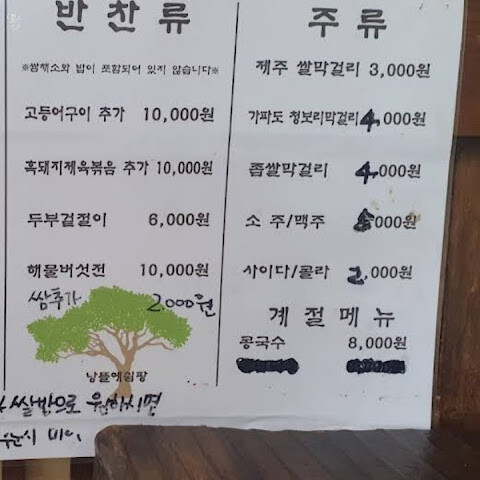 반찬류
※쌈채소와 밥이 포함되어 있지 않습니다※
고등어구이 추가 10,000원
흑돼지제육볶음 추가 10,000원
두부겉절이 6,000원
해물버섯전 10,000원
쌈추가 2,000원
낭뜰에쉼팡
쌀밥으로 원하시면
주류
제주 쌀막걸리 3,000원
가파도 청보리막걸리 4,000원
좁쌀막걸리 4,000원
소 주/맥주 ,000원
사이다/콜라 2,000원
계절메뉴
콩국수 8,000원